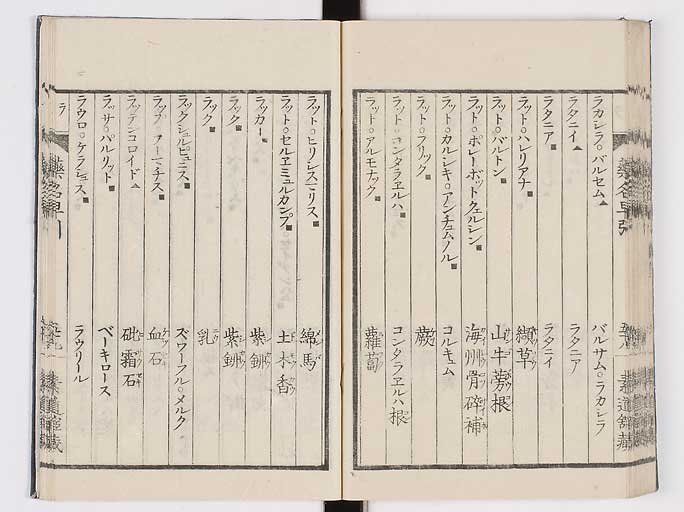 ラカシラ○バルセム▲ バルサム○ラカシラ
ラタニイ▲ ラタニア
ラタニア■ ラタニイ
ラット○ハレリアナ■ 纈草
ラット○バルトン■ 山牛蒡根
ラット○ポレーポットクェルシン■ 海州骨碎補
ラット○カルシキ○アンチュムノル■ コルキュム
ラット○フリック■ 蕨
ラット○コンタラエルハ■ コンタラエルハ根
ラット○アルモナック■ 蘿蔔
ラ
藥名早引
ラット○ヒリシスマリス■ 綿馬
ラット○セルエミュルカンプ■ 土木香
ラッカー■ 紫鉚
ラック■ 紫鉚
ラック■ 乳
ラックシュルピュニス■ ズワーフル○メルク
血石
ラッテンコロイド▲ 砒霜石
ラッサ○パルリット■ ベーキロース
ラウロ○ケラシュス■ ラウリール